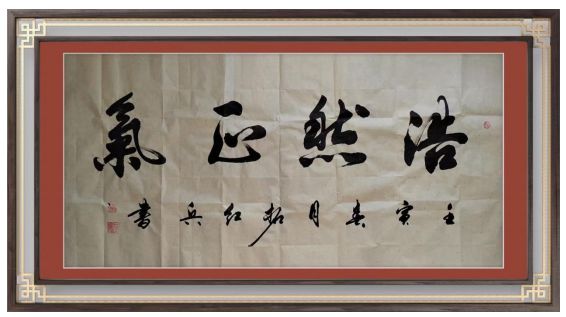 浩然正氣
壬寅春月红兵書